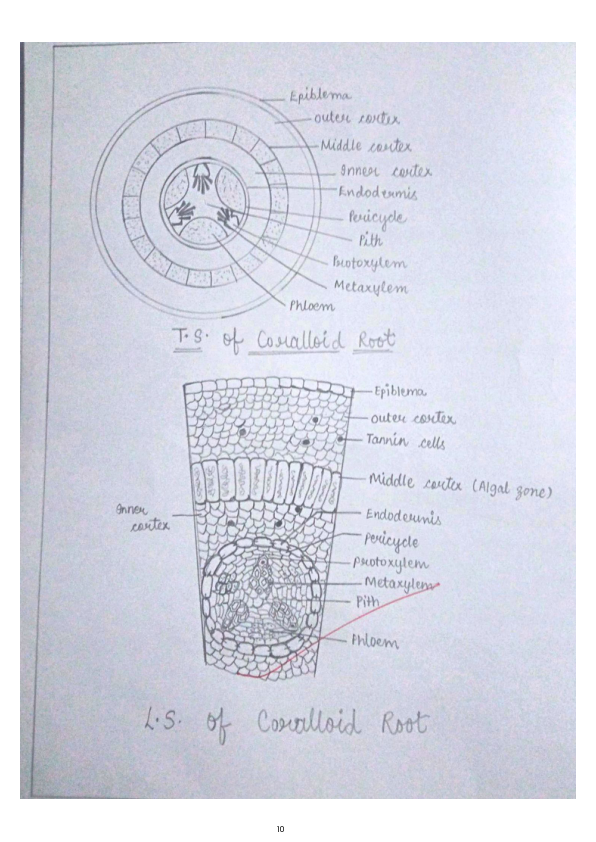 Epiblema
outer cortex
Middle cortex
Inner cortex
Endodermis
Pericycle
Pith
Protoxylem
Metaxylem
Phloem
T.S. of Coralloid Root
Epiblema
outer cortex
Tannin cells
Middle cortex (Algal zone)
Inner
cortex
Endodermis
Pericycle
Protoxylem
Metaxylem
Pith
Phloem
L.S. of Coralloid Root
10